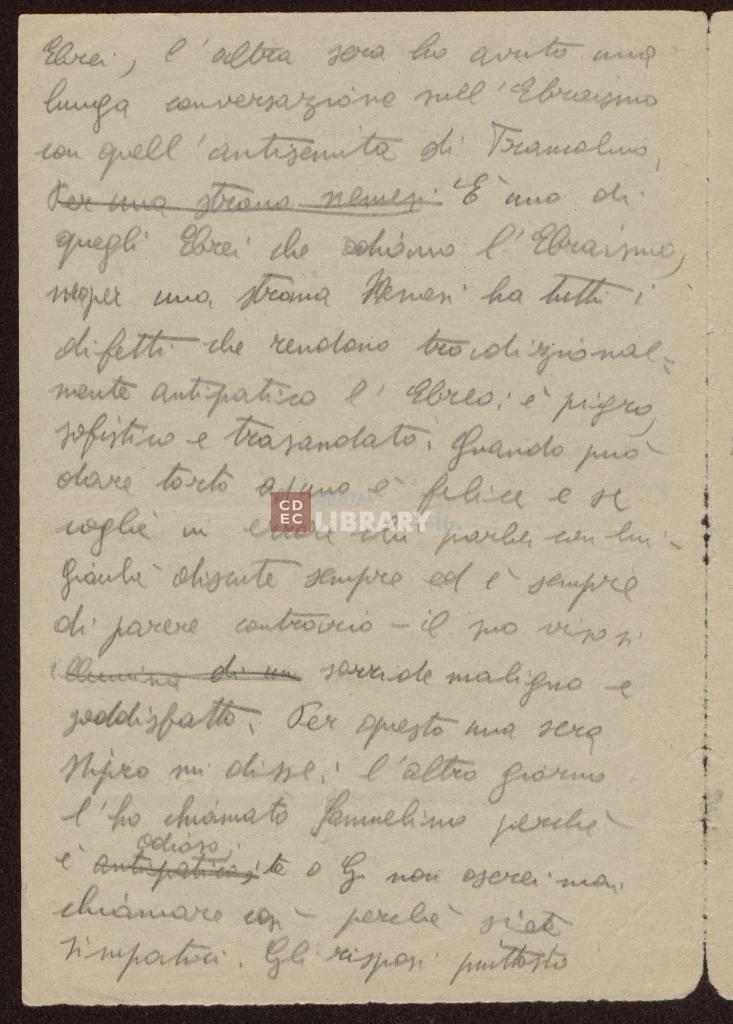 Ebrei, l'altra sera ho avuto una
lunga conversazione sull'Ebraismo
con quell'antisemita di
Per una strana nemesi È uno di
quegli Ebrei che odiano l'Ebraismo,
per una strana Nemesi ha tutti i
difetti che rendono tradizional-
mente antipatico l'Ebreo: è pigro,
sofistico e trasandato. Quando può
dare torto a uno è felice e se
coglie in errore chi parla con lui -
discute sempre ed è sempre
di parere contrario - il suo viso si
illumina di un sorride maligno e
soddisfatto. Per questo una sera
mi disse: l'altro giorno
l'ho chiamato Samuelino perché
odioso;
è antipatico; te o G. non oserei mai
chiamare così perché siete
simpatici. Gli risposi piuttosto
CDEC
DIGITAL
LIBRARY.it